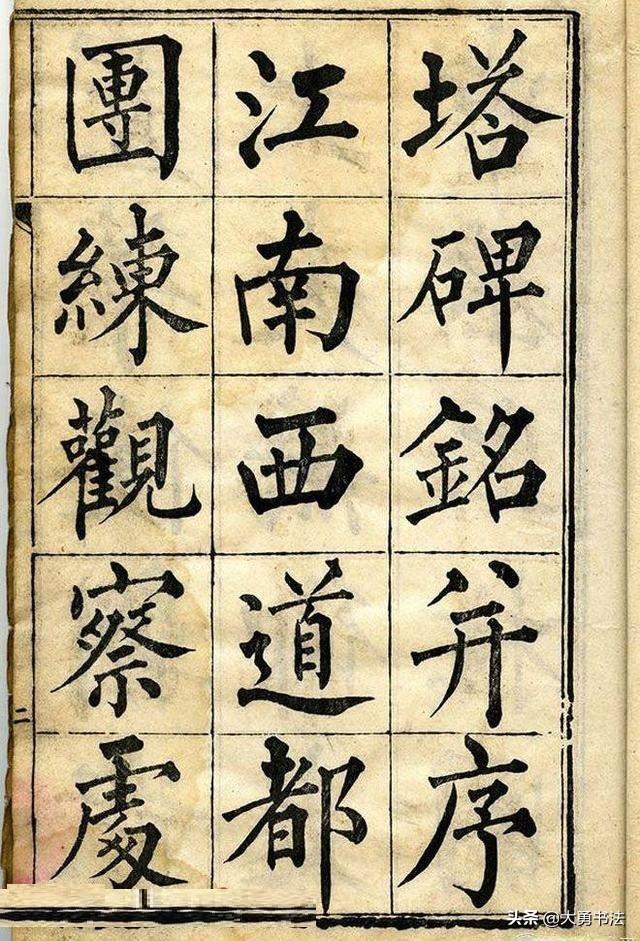 塔碑銘并序
江南西道都
團練觀察處
二
头条@大勇书法